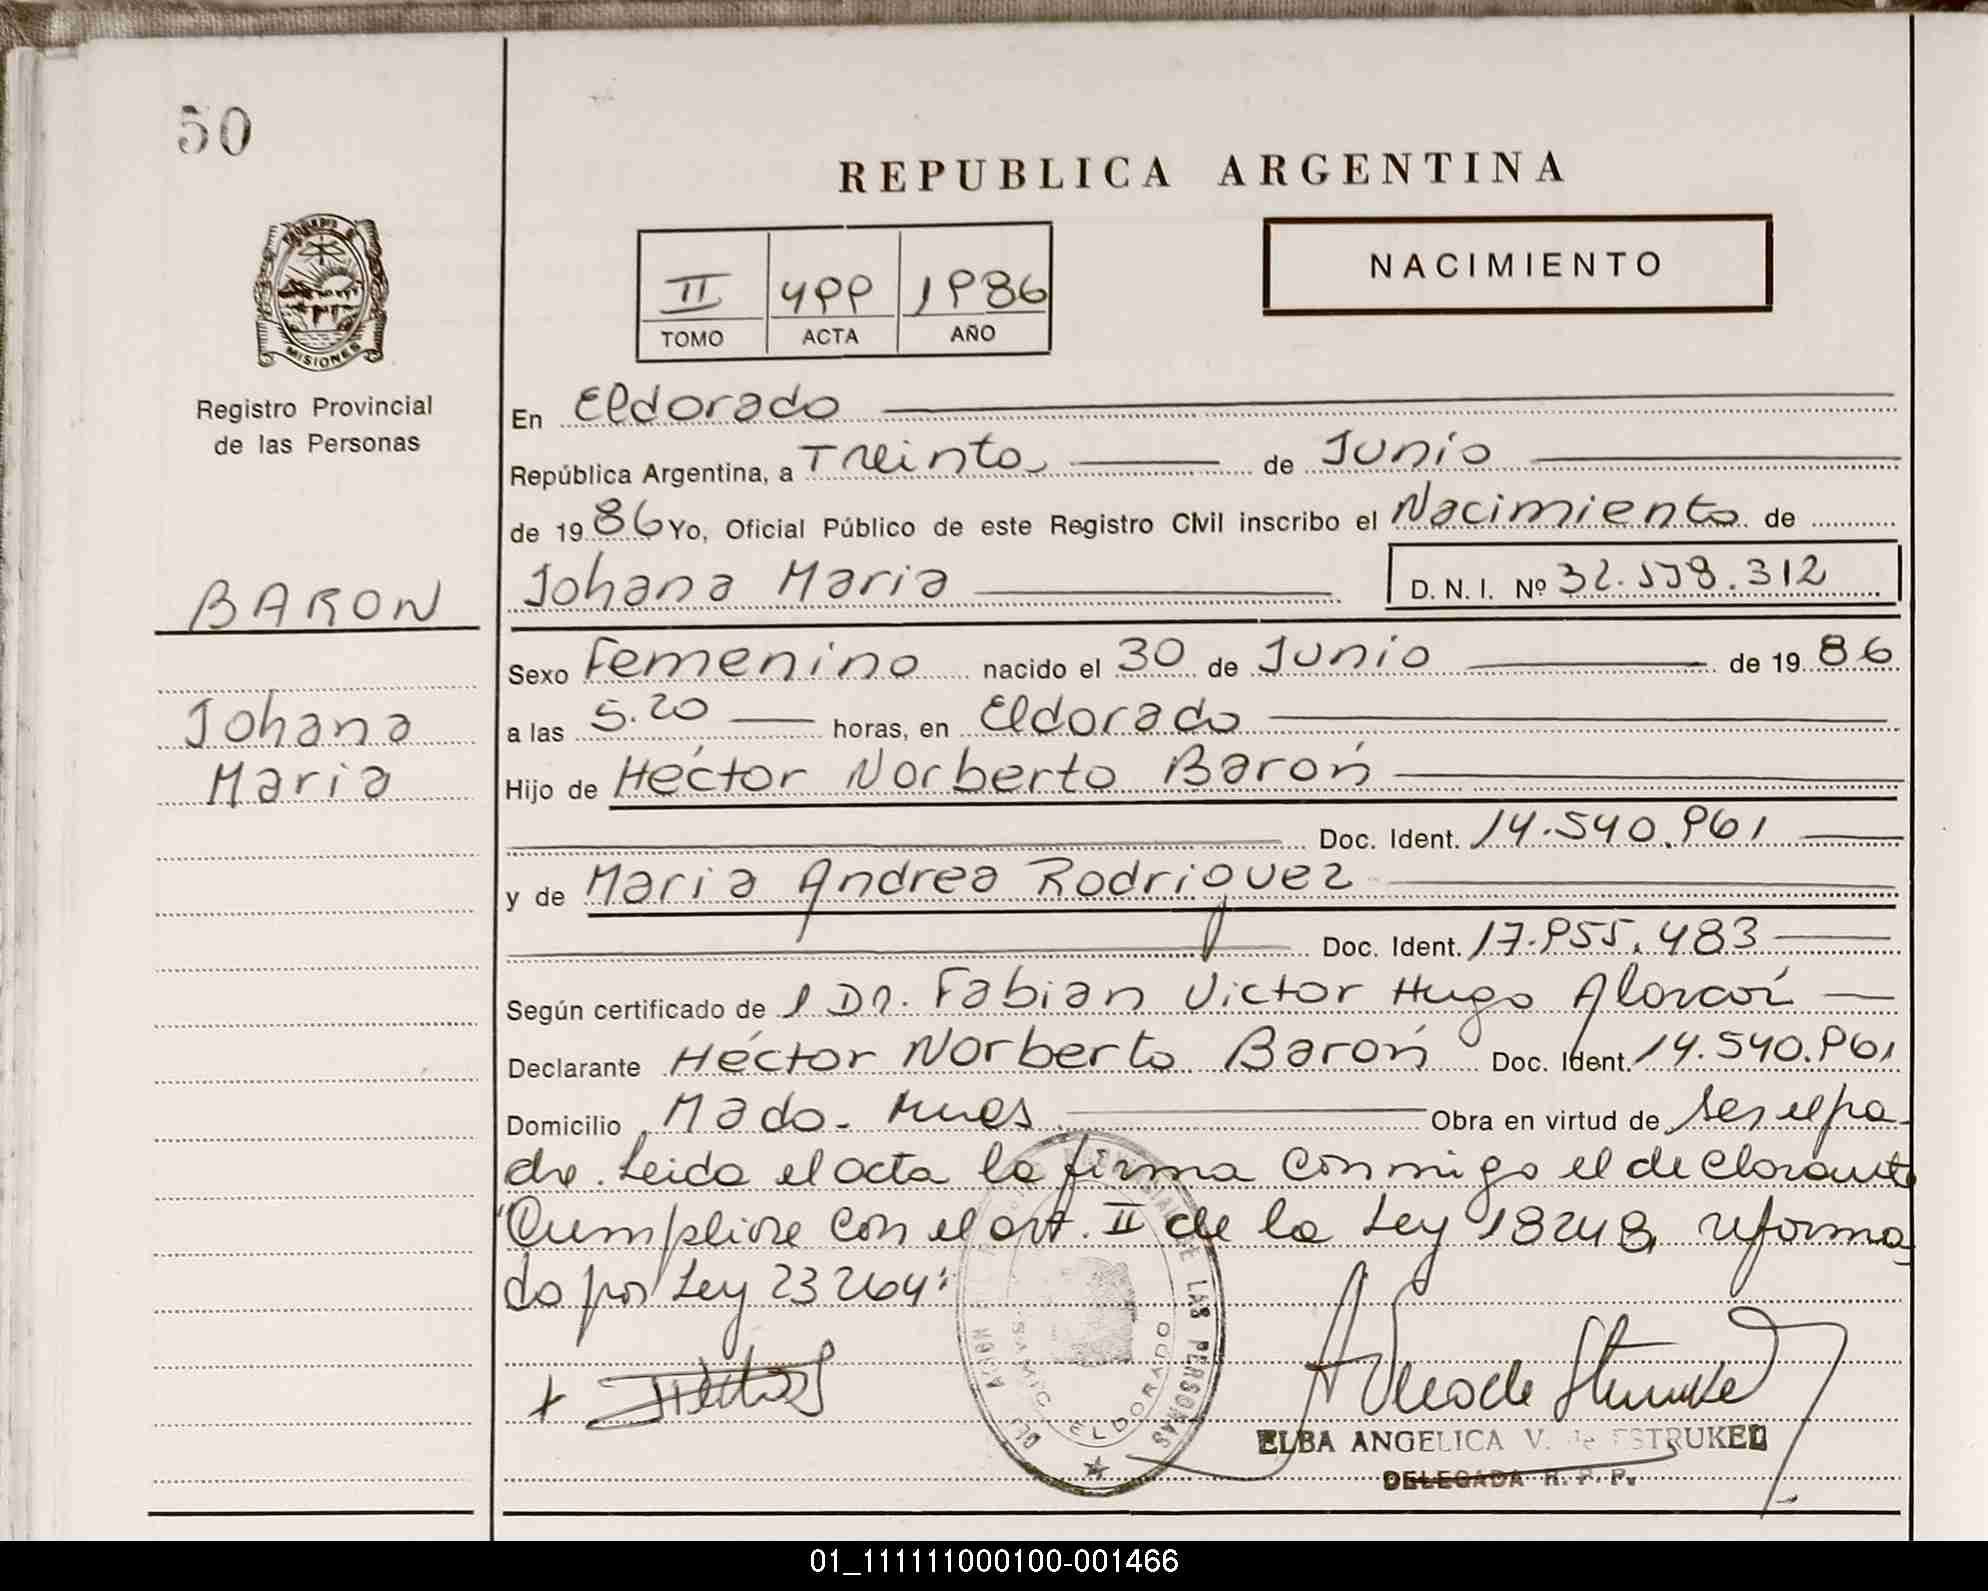 50
REPUBLICA ARGENTINA
NACIMIENTO
II 499 1986
TOMO ACTA AÑO
MISIONES
Registro Provincial
de las Personas
En Eldorado
República Argentina, a Treinta de Junio
de 1986 Yo, Oficial Público de este Registro Civil inscribo el Nacimiento de
BARON
Johana Maria D. N. I. Nº 32.538.312
Sexo Femenino nacido el 30 de Junio de 1986
Johana
a las 5.20 horas, en Eldorado
Maria
Hijo de Héctor Norberto Barón
Doc. Ident. 14.540.961
y de Maria Andrea Rodriguez
Doc. Ident. 17.955.483
Según certificado de l Dr. Fabian Victor Hugo Alarcón
Declarante Héctor Norberto Barón Doc. Ident. 14.540.961
Domicilio Mado - Mnes Obra en virtud de ser el pa-
dre. Leida el acta la firma conmigo el declarante
"Cumpliose con el art. II de la Ley 18248, reforma
do por Ley 23264"
LAS PERSONAS
SAMIC ELDORADO
ELBA ANGELICA V. de ESTRUKEL
DELEGADA R. P. P.
01_111111000100-001466